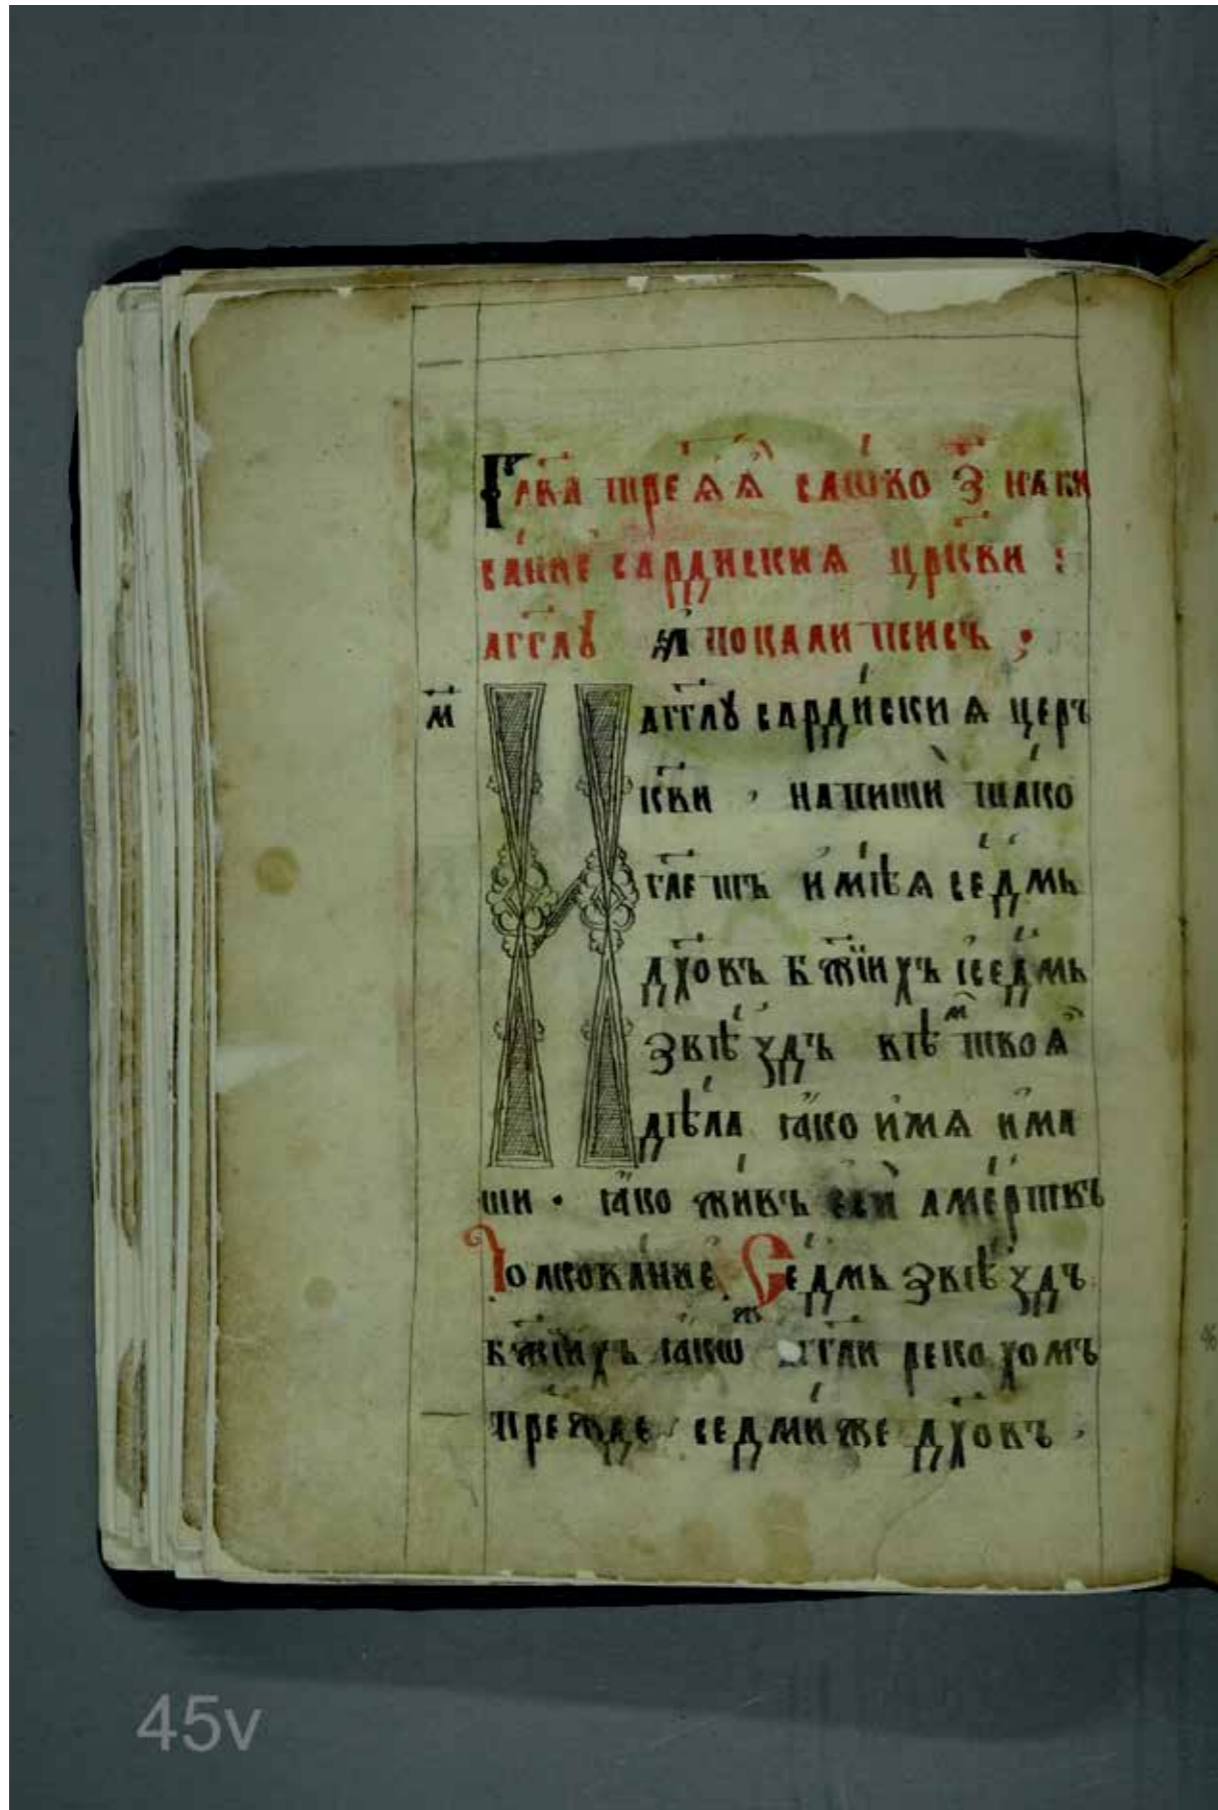 Глⷡ҇а трⷮе́ѧѧ сло́во з҃ напи
са́нїе сарди́скиѧ цр҃кви :
а҆гг҃лꙋ а҆покалиѱисъ ;
м҃ И҆ а҆гг҃лꙋ сарди́скиѧ церъ
к҃ви , напишѝ та́ко
гл҃етъ и҆мѣ́ѧ се́дмь
дх҃овъ бж҃їихъ и҆се́дмь
ѕвѣ́здъ вѣⷨ твоѧ̀
дѣ́ла ꙗ҆́ко и҆́мѧ и҆́ма
ши · ꙗ҆́ко жи́въ є҆сѝ а҆ме́ртвъ
Толкова́нїе Се́дмь ѕвѣ́здъ
бж҃їихъ ꙗ҆́кѡⷤ а҆гг҃ли реко́хомъ
пре́жде , седми́же дх҃овъ ,
45v